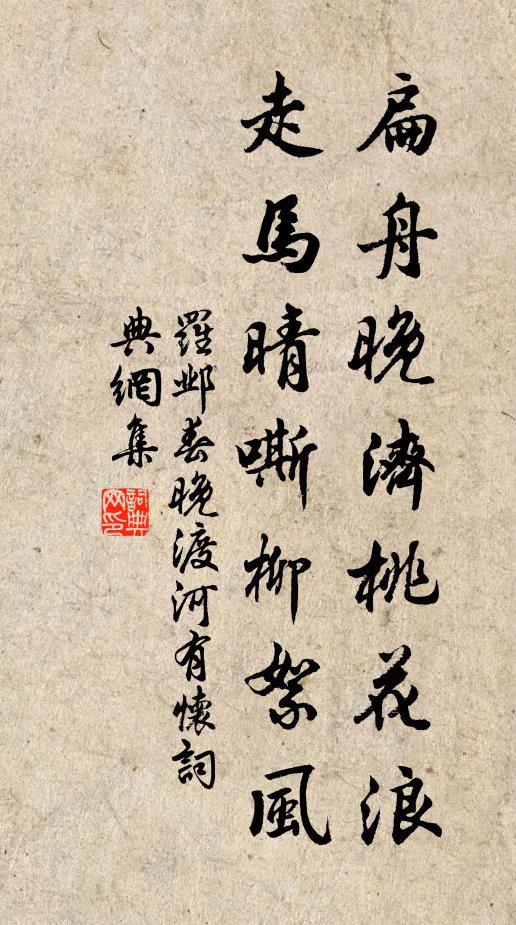 扁舟晚濟桃花浪
走馬晴嘶柳絮風
羅鄴春晚渡河有懷詞
典網集
詞典网印